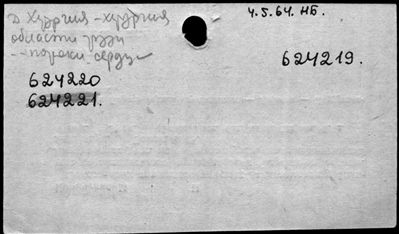 д Хирургия - хирургия
области груди
-- пороки сердца
4.5.64. НБ.
624219.
624220
624221.